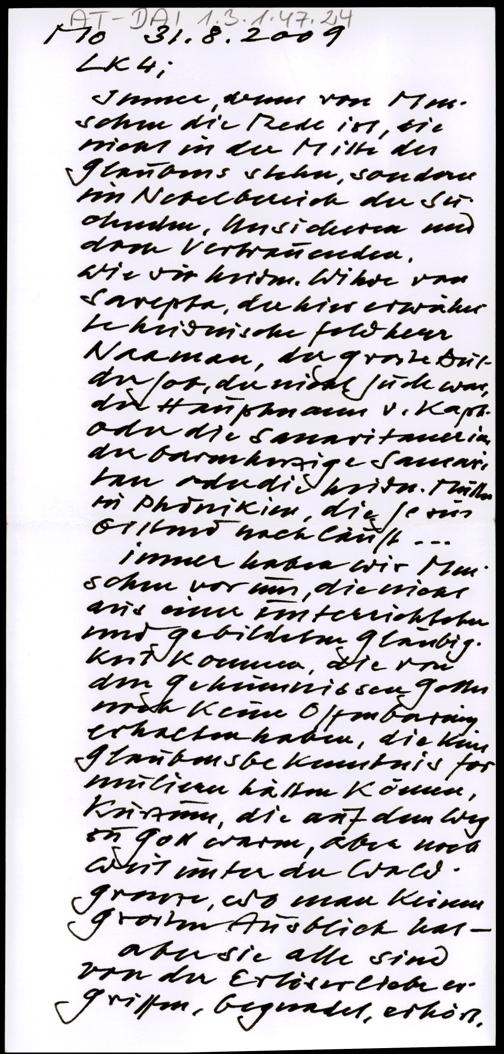 AT-DAI 1.3.1.47.24
Mo 31.8.2009
LK 4;
Immer, wenn von Men-
schen die Rede ist, die
nicht in der Mitte des
Glaubens stehen, sondern
im Nebelbereich der Su-
chenden, Unsicheren und
doch Vertrauenden,
wie die heidn. Witwe von
Sarepta, der hier erwähn-
te heidnische Feldherr
Naaman, der große Dul-
der Job, der nicht Jude war,
der Hauptmann v. Kaph.
oder die Samaritanerin,
der barmherzige Samari-
tan oder die heidn. Mutter
in Phönikien, die Jesus
nachläuft ...
Immer haben wir Men-
schen vor uns, die nicht
aus einer unterrichteten
und gebildeten Gläubig-
keit kommen, die von
den Geheimnissen Gottes
noch keine Offenbarung
erhalten haben, die kein
Glaubensbekenntnis for
mulieren hätten können,
kurzum, die auf dem Weg
zu Gott waren, aber noch
weit unter der Wald-
grenze, wo man keinen
großen Ausblick hat –
aber sie alle sind
von der Erlöserliebe er-
griffen, begnadet, erhört.